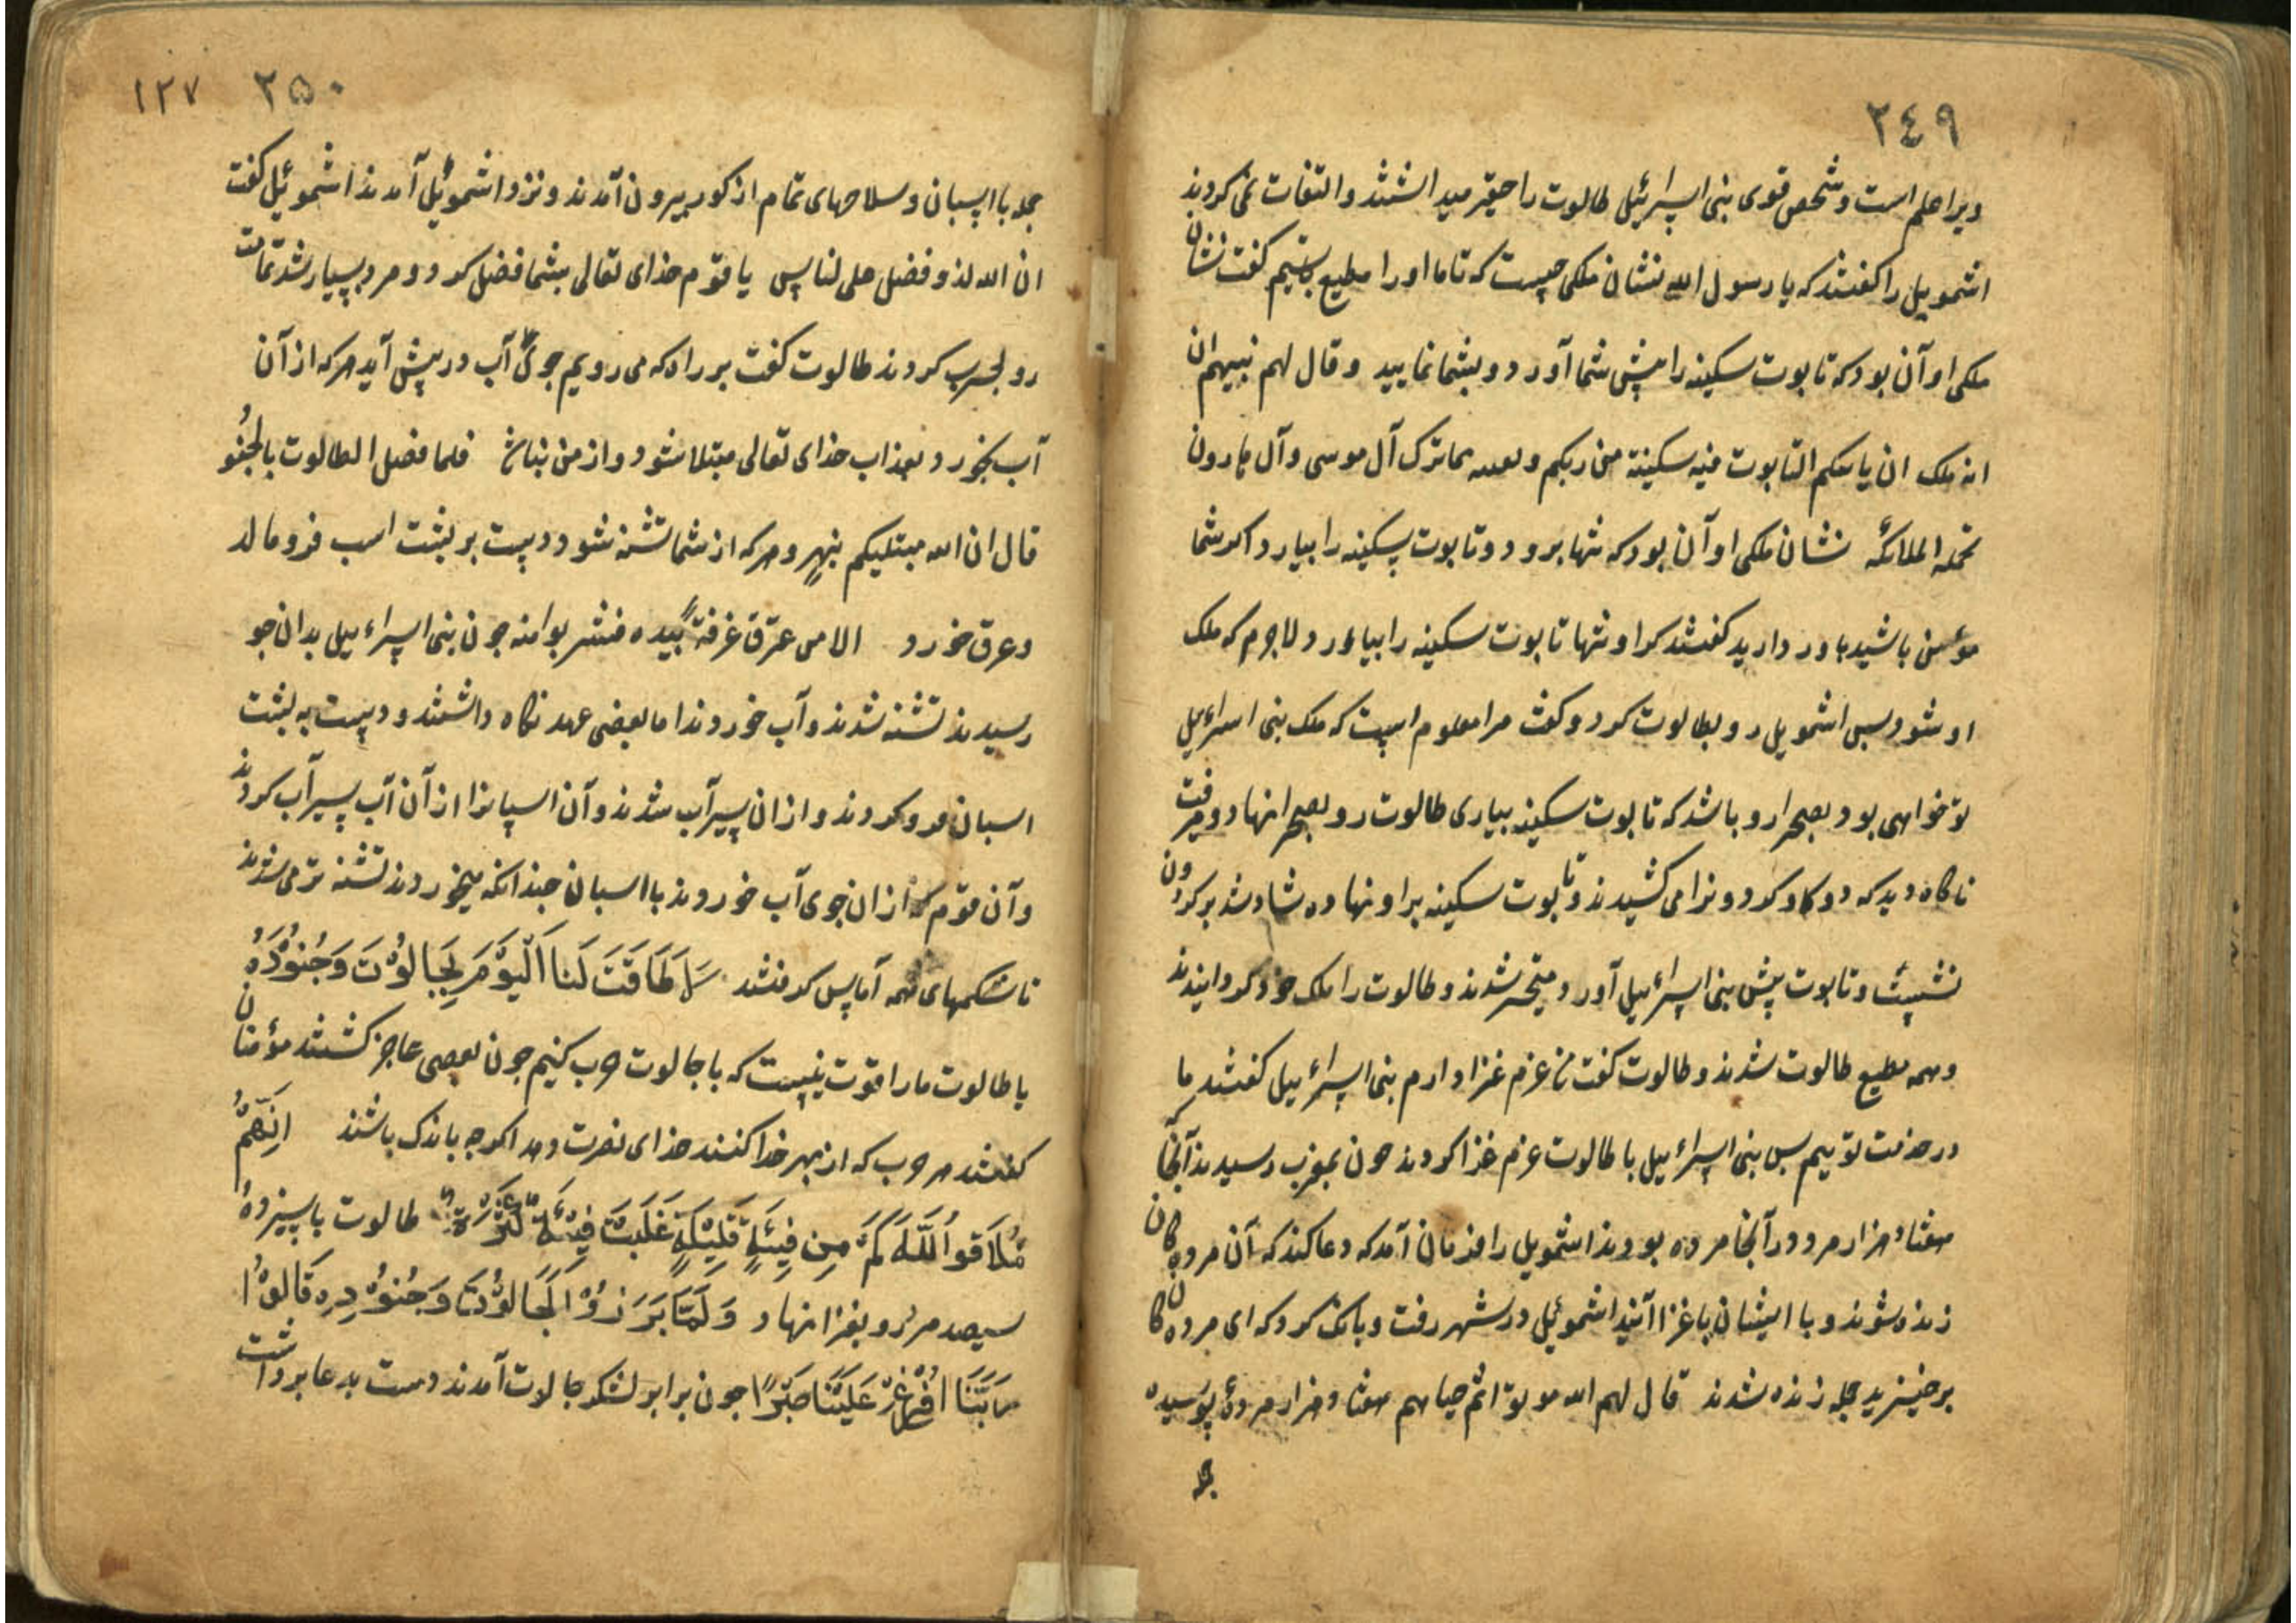 ٢٤٩
ویرا علم است و شخص قوی بنی اسرائیل طالوت را حقیر میدانشتند و التفات نمی کردند
اشمویل را کفتند که یا رسول الله نشان ملکی چیست که تا ما او را مطیع باشیم کفت نشان
ملکی او آن بود که تابوت سکینه را پیش شما آورد و بشما نمایید وقال لهم نبیهم ان
انه ملک ان یاتیکم التابوت فیه سکینة من ربکم وبقیه مما ترک آل موسی وآل هارون
تحمله الملائکه نشان ملکی او آن بود که تنها برود و تابوت سکینه را بیارد اکر شما
مؤمن باشید باور دارید کفتند که او تنها تابوت سکینه را بیاورد لاجرم که ملک
او شود پس اشمویل رو بطالوت کرد و کفت مرا معلوم است که ملک بنی اسرائیل
تو خواهی بود بصحرا رو باشد که تابوت سکینه بیاری طالوت رو بصحرا نهاد و میرفت
ناکاه دید که دو کاو کردونرا می کشیدند و تابوت سکینه برا و نهاده شاد شد بر کردون
نشست و تابوت پیش بنی اسرائیل آورد متحیر شدند و طالوت را ملک خود کردانیدند
وهمه مطیع طالوت شدند و طالوت کفت من عزم غزا دارم بنی اسرائیل کفتند ما
در خدمت توییم پس بنی اسرائیل با طالوت عزم غزا کردند چون بمغرب رسیدند آنجا
هفتاد هزار مرد در آنجا مرده بودند اشمویل را فرمان آمد که دعا کند که آن مرده کان
زنده شوند و با ایشان باغزا آیند اشموئیل در شهر رفت و بانک کرد که ای مرده کان
برخیزید جمله زنده شدند قال لهم الله موتوا ثم حیاهم هفتاد هزار مردۀ پوسیده
جمله
٢٥٠ ١٢٧
جمله با اسپان و سلاحهای تمام از کور بیرون آمدند و نزد اشموئیل آمدند اشموئیل کفت
ان الله لذو فضل علی لناس یا قوم خدای تعالی بشما فضل کرد و مرد بسیار شد تمامت
رو بحرب کردند طالوت کفت بر راه که می رویم جوئی آب در پیش آید هر که از آن
آب بخورد بعذاب خدای تعالی مبتلا شود و از من نباشد فلما فصل الطالوت بالجنو
قال ان الله مبتلیکم بنهر و هر که از شما تشنه شود دست بر پشت اسب فرو مالد
و عرق خورد الا من غترق غرفةً بیده فشربوا منه چون بنی اسراءیل بدان جو
رسیدند تشنه شدند و آب خوردند اما بعضی عهد نکاه داشتند و دست به پشت
اسبان فرو کردند و از ان سیر آب شدند و آن اسپانرا از آن آب سیرآب کردند
و آن قوم که از ان جوی آب خوردند با اسبان چندانکه میخوردند تشنه تر می شدند
تا شکمهای همه آماس کرفتند لَا طَاقَتَ لَنَا الْیَوْمَ بِجَالُوْتَ وَجُنُوْدَهُ
یا طالوت ما را قوت نیست که با جالوت حرب کنیم چون بعضی عاجز کشتند مؤمنان
کفتند هر حرب که از بهر خدا کنند خدای نصرت دهد اکرچه باندک باشند اَنَّهُمْ
مُلَاقُوا اللَّه کَمْ مِن فِئَةٍ قَلِیْلَةٍ غَلَبَتْ فِئَةً کَثِیْرَةً طالوت با سیزده
سیصد مرد رو بغزا نهاد وَلَمَّا بَرَزُوْا لَجَالُوْتَ وَجُنُوْدِهِ قَالُوْا
رَبَّنَا افْرِغْ عَلَیْنَا صَبْرًا چون برابر لشکر جالوت آمدند دست بدعا برداشت